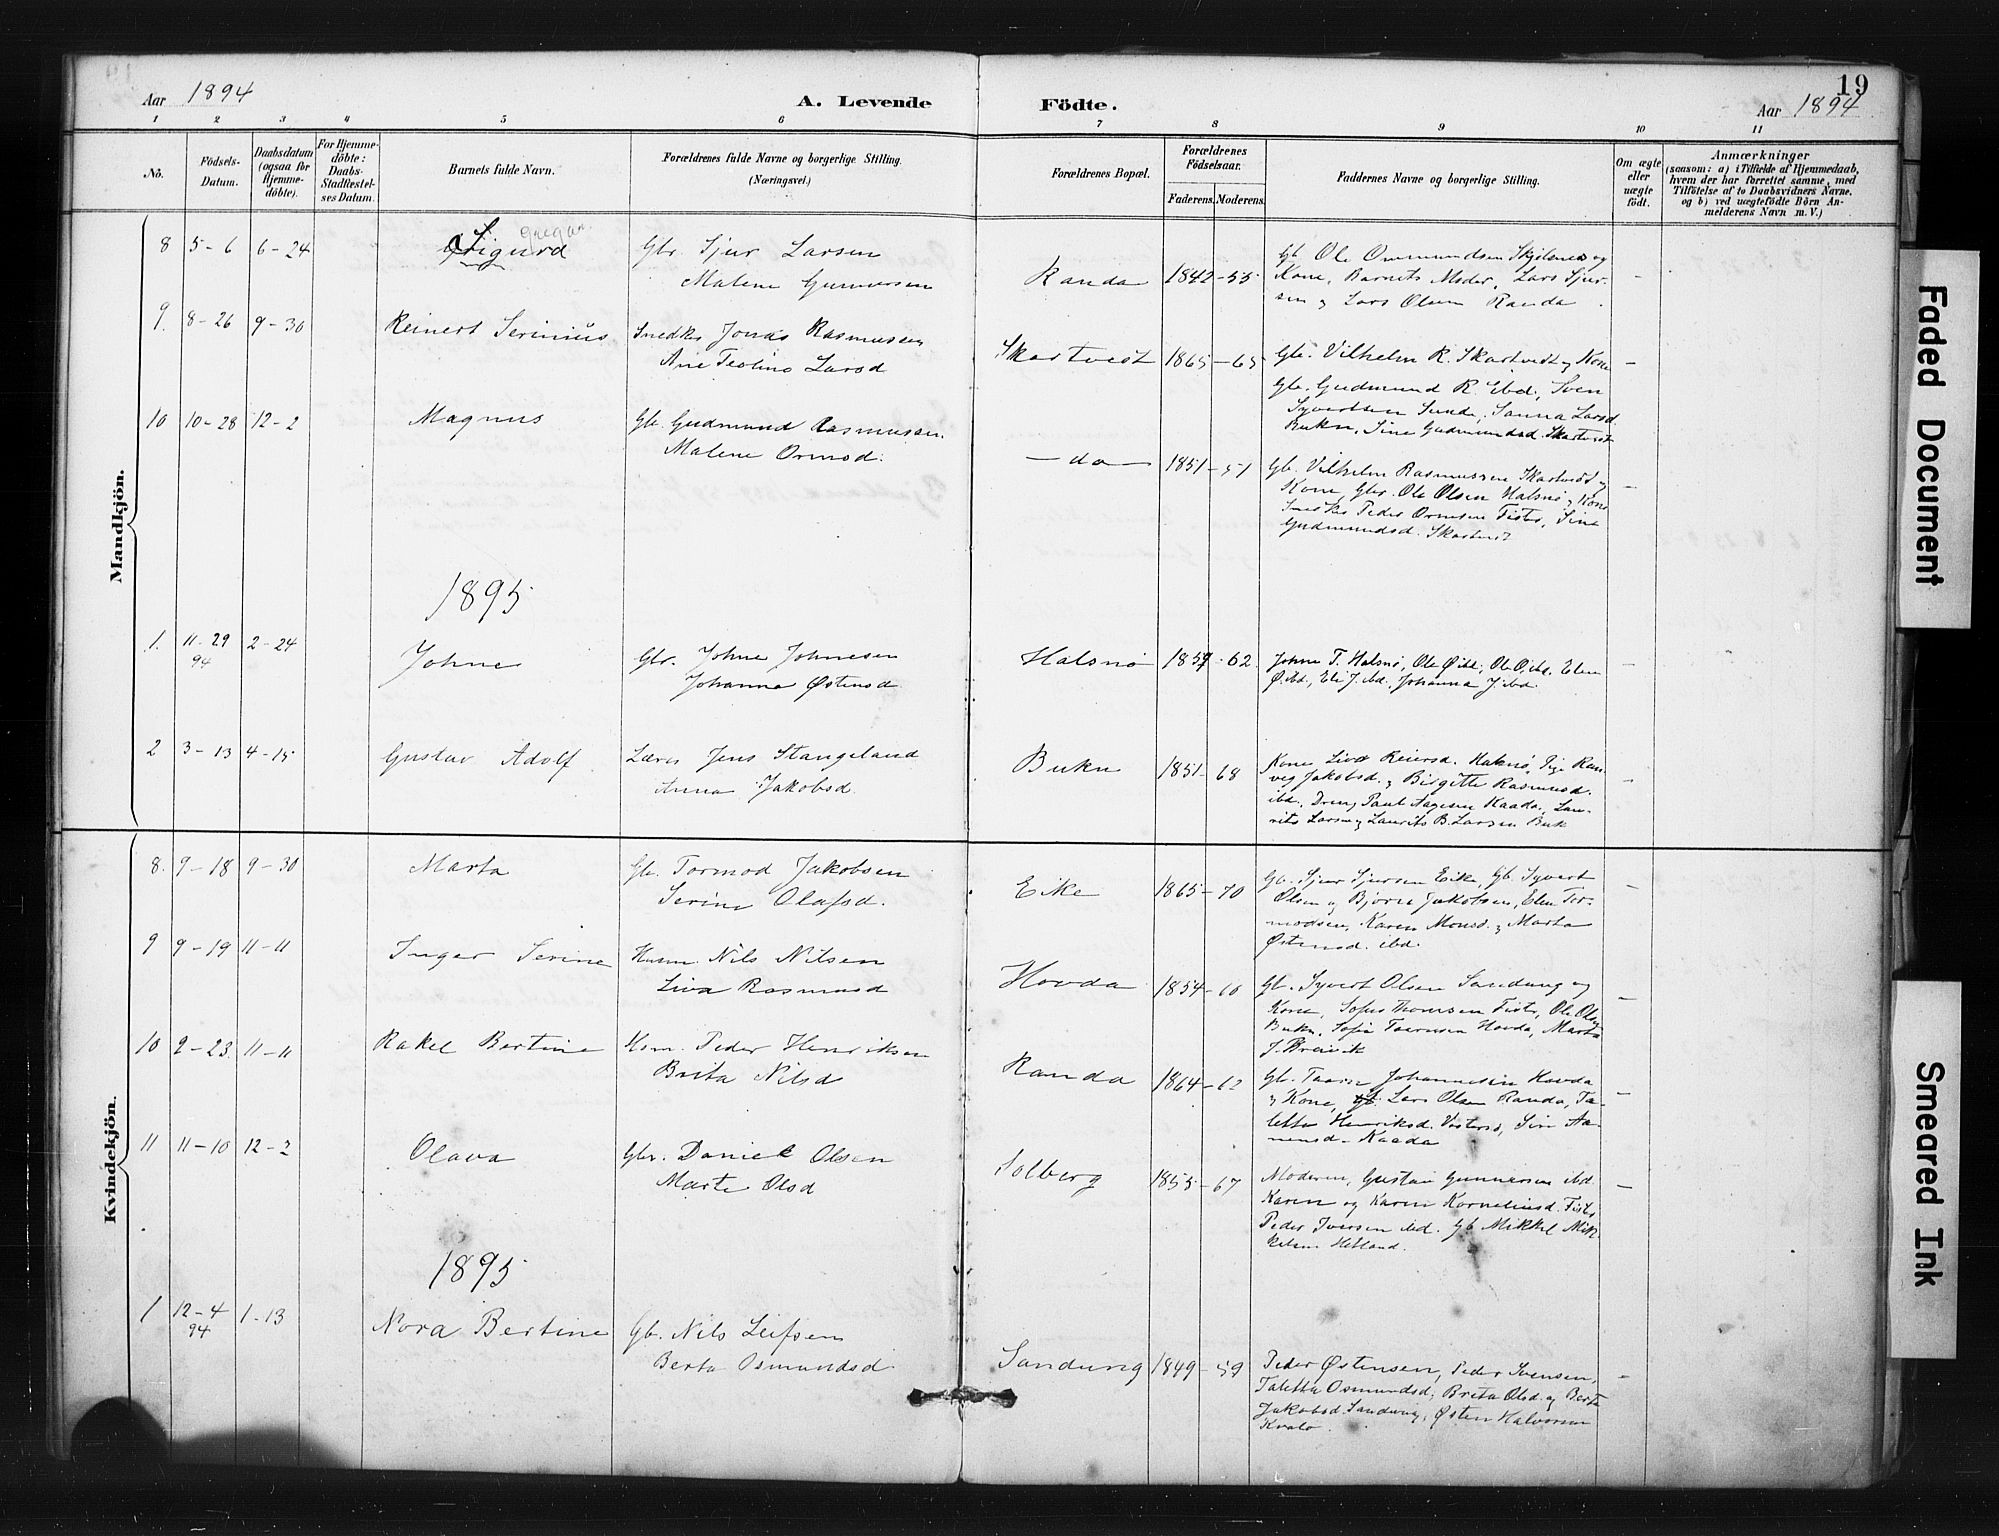 19
Aar 1894 A. Levende Födte. Aar 1894
1 2 3 4 5 6 7 8 9 10 11
No. Födsels-Datum. Daabsdatum (ogsaa for Hjemmedöbte). For Hjemmedöbte: Daabs-Stadfæstelses Datum. Barnets fulde Navn. Forældrenes fulde Navne og borgerlige Stilling. (Næringsvei.) Forældrenes Bopæl. Forældrenes Födselsaar. Faderens. Moderens. Faddernes Navne og borgerlige Stilling. Om ægte eller uægte födt. Anmærkninger (saasom: a) i Tilfælde af Hjemmedaab, hvem der har forrettet samme, med Tilföielse af to Daabsvidners Navne, og b) ved uægtefödte Börn Anmelderens Navn m. V.)
Mandkjön.
8 5-6 6-24 Sigurd Gbr. Sjur Larsen
Malene Gunnarsen Randa 1842-55
Gb. Ole Ommundsen og
Kone, Barnets Moder, Lars Sjur-
sen og Lars Olsen Randa
9. 8-26 9-30 Reinert Serinius Snedker Jonas Rasmussen
Ane Teoline Larsd Skartveit 1865-65
Gb. Vilhelm R. Skartveit og Kone
Gb. Gudmund R. ibd, Sven
Syvertsen Sunde, Sanna Larsd
Bukn, Sine Gudmundsd. Skartveit
10 10-28 12-2 Magnus Gb. Gudmund Rasmussen
Malene Ormsd. -do- 1851-51
Gb. Vilhelm Rasmussen Skartveit og
Kone, Gbr. Ole Olsen Halsnø og Kone
Peder Ormsen Fister, Sine
Gudmundsd. Skartveit
1895
1. 11-29 94 2-24 Johne Gbr. Johne Johnesen
Johanna Østensd. Halsnø 1859-62
Johne T. Halsnø, Ole Ø ibd, Ole O. ibd. Elen
Ø. ibd, Eli J. ibd, Johanna J. ibd.
2 3-13 4-15 Gustav Adolf Lærer Jens Stangeland
Anna Jakobsd. Bukn 1851-68
Kone Liva Reiersd. Halsnø, Pige Ran-
veig Jakobsd. og Birgitte Rasmusd.
ibd, Dreng Paul Aagesen Kaada, Lau-
rits Larsen og Laurits B. Larsen Buk
Kvindekjön.
8. 9-18 9-30 Marta Gb. Tormod Jakobsen
Serine Olafsd. Eike 1865-70
Gb. Sjur Sjursen Eike, Gb. Syvert
Olsen og Bjorne Jakobsen, Elen Tor-
modsen, Karen Monsd. og Marta
Østensd. ibd.
9 9-19 11-11 Inger Serine Husm. Nils Nilsen
Liva Rasmusd Hovda 1854-60
Gb. Syvert Olsen Sandung og
Kone, Sofus Thomsen Fister, Ole Olsen
Bukn, Sofie Taarnsen Hovda, Marta
J. Breivik
10 9-23 11-11 Rakel Bertine Hsm. Peder Henriksen
Brita Nilsd Randa 1864-62
Gb. Taarn Johannesen Hovda
og Kone, Gb. Lars Olsen Randa, Ta-
letta Henriksd. Vostersø, Siri Aa-
nensd. Kaada
11 11-10 12-2 Olava Gbr. Daniel Olsen
Marte Olsd Solberg 1855-67
Moderen, Gustav Gunnarsen ibd
Karen og Karen Korneliusd. Fister
Peder Iversen ibd. Gb Mikkel Mik-
kelsen Hetland.
1895
1 12-4 94 1-13 Nora Bertine Gb. Nils Leifsen
Berta Osmundsd Sandung 1849-59
Peder Østensen, Peder Svensen,
Taletta Osmundsd, Brita Olsd. og Berta
Jakobsd. Sandung, Østen Halvorsen
Kvalø.
Faded Document
Smeared Ink